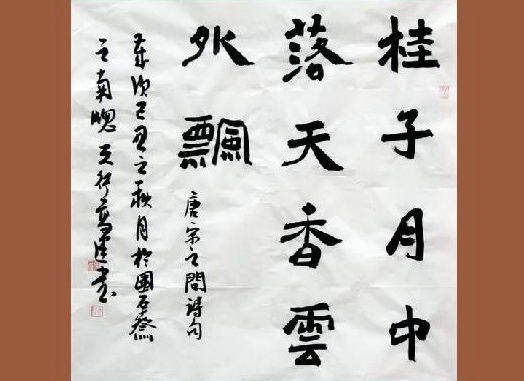 桂子月中
落天香雲
外飄
唐宋之問詩句
歲次己丑之秋月於國石
之南牕
書